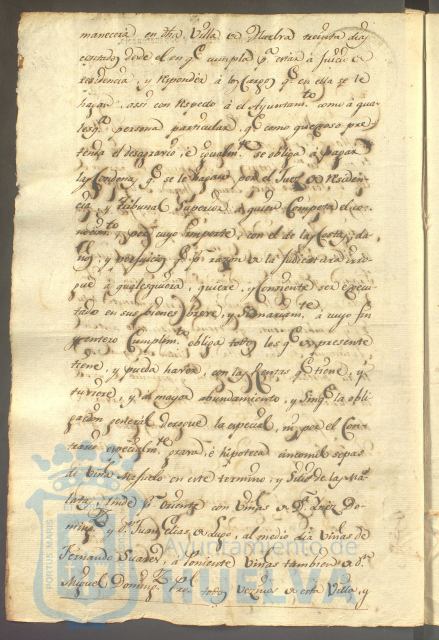 manecerá en dha Villa de Huelva treinta dias
contados desde el en qe cumpla pa estar á Juicio de
residencia, y responder á los Cargos qe en ella se le
hagan, assi con respecto á el Ayuntamto como á qua-
lesqa persona particular qe como quexoso pre-
tenda el desagravio, é igualmte se obliga á pagar
las Condenas qe se le hagan por el Juez de residen-
cia, y tribunal Superior á quien Competa el co-
nocimto, por cuyo importe, con el de las Costas, da-
ños, y perjuicios qe pr razon de la Judicatura
á qualesquiera, quiere, y Consiente ser execu-
tado en sus bienes breve, y Sumariamte á cuyo fin
y entero Cumplimto obliga todos los qe de presente
tiene, y pueda haver, con las Rentas qe tiene, y
tuviere, y á mayor abundamiento, y Sin qe la obli-
gacion general derogue la especial, ni por el Con-
trario especialmte grava, é hipoteca cepas
de Viña en este termino, y Sitio de la
linde pr oriente con Viñas de Dn Lopez Do-
ming y Dn Juan Elias de Lugo, al medio dia Viñas de
Fernando Suarez, á poniente Viñas tambien de Dn
Miguel Doming todos vezinos de esta Villa, y
PORTUS MARIS
Ayuntamiento de
HUELVA